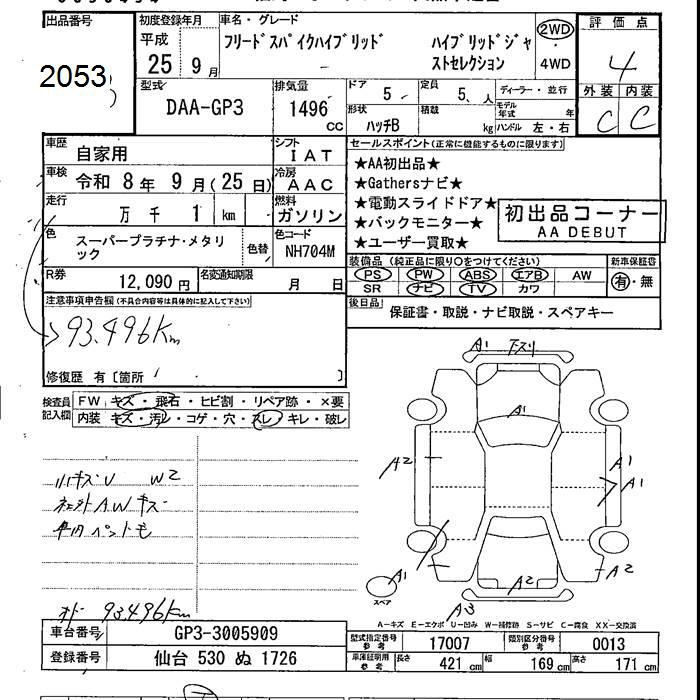 出品番号
2053
初度登録年月
平成
25 9 月
車名・グレード
フリードスパイクハイブリッド ハイブリッドジャ
ストセレクション
2WD
4WD
評価点
4
外装 内装
C C
型式
DAA-GP3
排気量
1496
cc
ドア
5
定員
5 人
ディーラー・並行
形状
ハッチB
積載
kg
モデル年式 年
ハンドル 左・右
車歴
自家用
シフト
IAT
車検
令和 8年 9月(25日)
冷房
AAC
走行
万 千 1 km
燃料
ガソリン
色
スーパープラチナ・メタリ
ック
色替
色コード
NH704M
R券
12,090 円
名変通知期限
月 日
セールスポイント(正常に機能するものに限ります)
★AA初出品★
★Gathersナビ★
★電動スライドドア★
★バックモニター★
★ユーザー買取★
初出品コーナー
AA DEBUT
装備品(純正品に限り○をつけてください)
PS PW ABS エアB AW
SR ナビ TV カワ
新車保証書
有・無
後日品
保証書・取説・ナビ取説・スペアキー
注意事項申告欄(不具合内容等は具体的に記入して下さい)
93,496Km
修復歴 有〔箇所 〕
検査員
記入欄
FW キズ・飛石・ヒビ割・リペア跡・×要
内装 キズ・汚レ・コゲ・穴・スレ・キレ・破レ
W2
AWキズ
93,496Km
A1 下スリ
A1
A2
A1
A1
A1
A2
A2
A3
スペア
A-キズ E-エクボ U-凹み W-補修跡 S-サビ C-腐食 XX-交換済
車台番号
GP3-3005909
登録番号
仙台 530 ぬ 1726
型式指定番号
参考
17007
類別区分番号
参考
0013
車庫証明用
参考
長さ
421 cm
幅
169 cm
高さ
171 cm